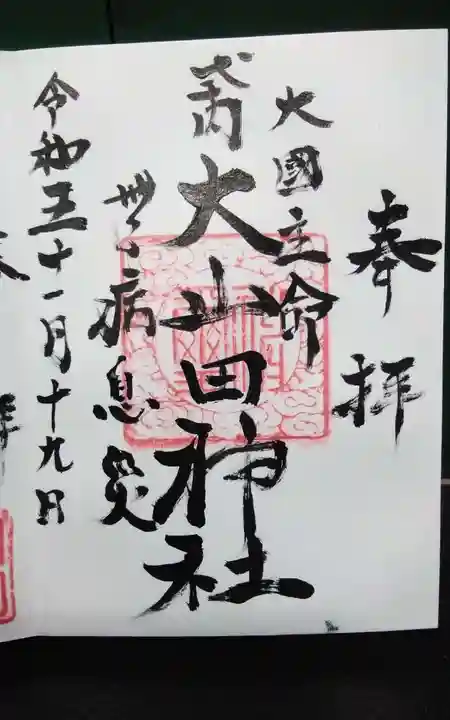 奉拝
大國主命
式内 大山田神社
病息災
令和五十一月十九日